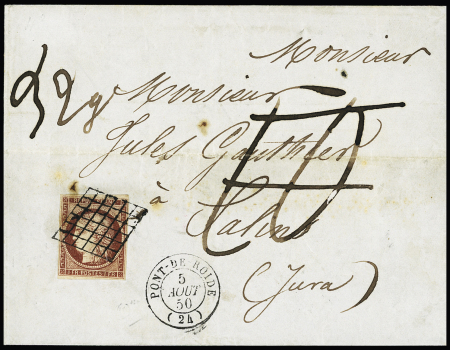 Monsieur
Monsieur
Jules Gauthier
à
Salins
(Jura)
1 FR POSTES 1 F
PONT-DE-ROIDE
5
AOUT
50
(24)